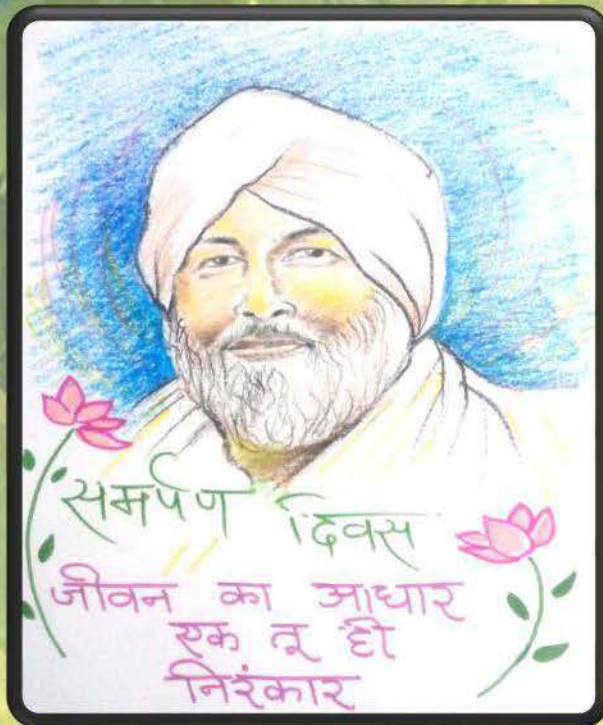 समर्पण दिवस
जीवन का आधार
एक तू ही
निरंकार